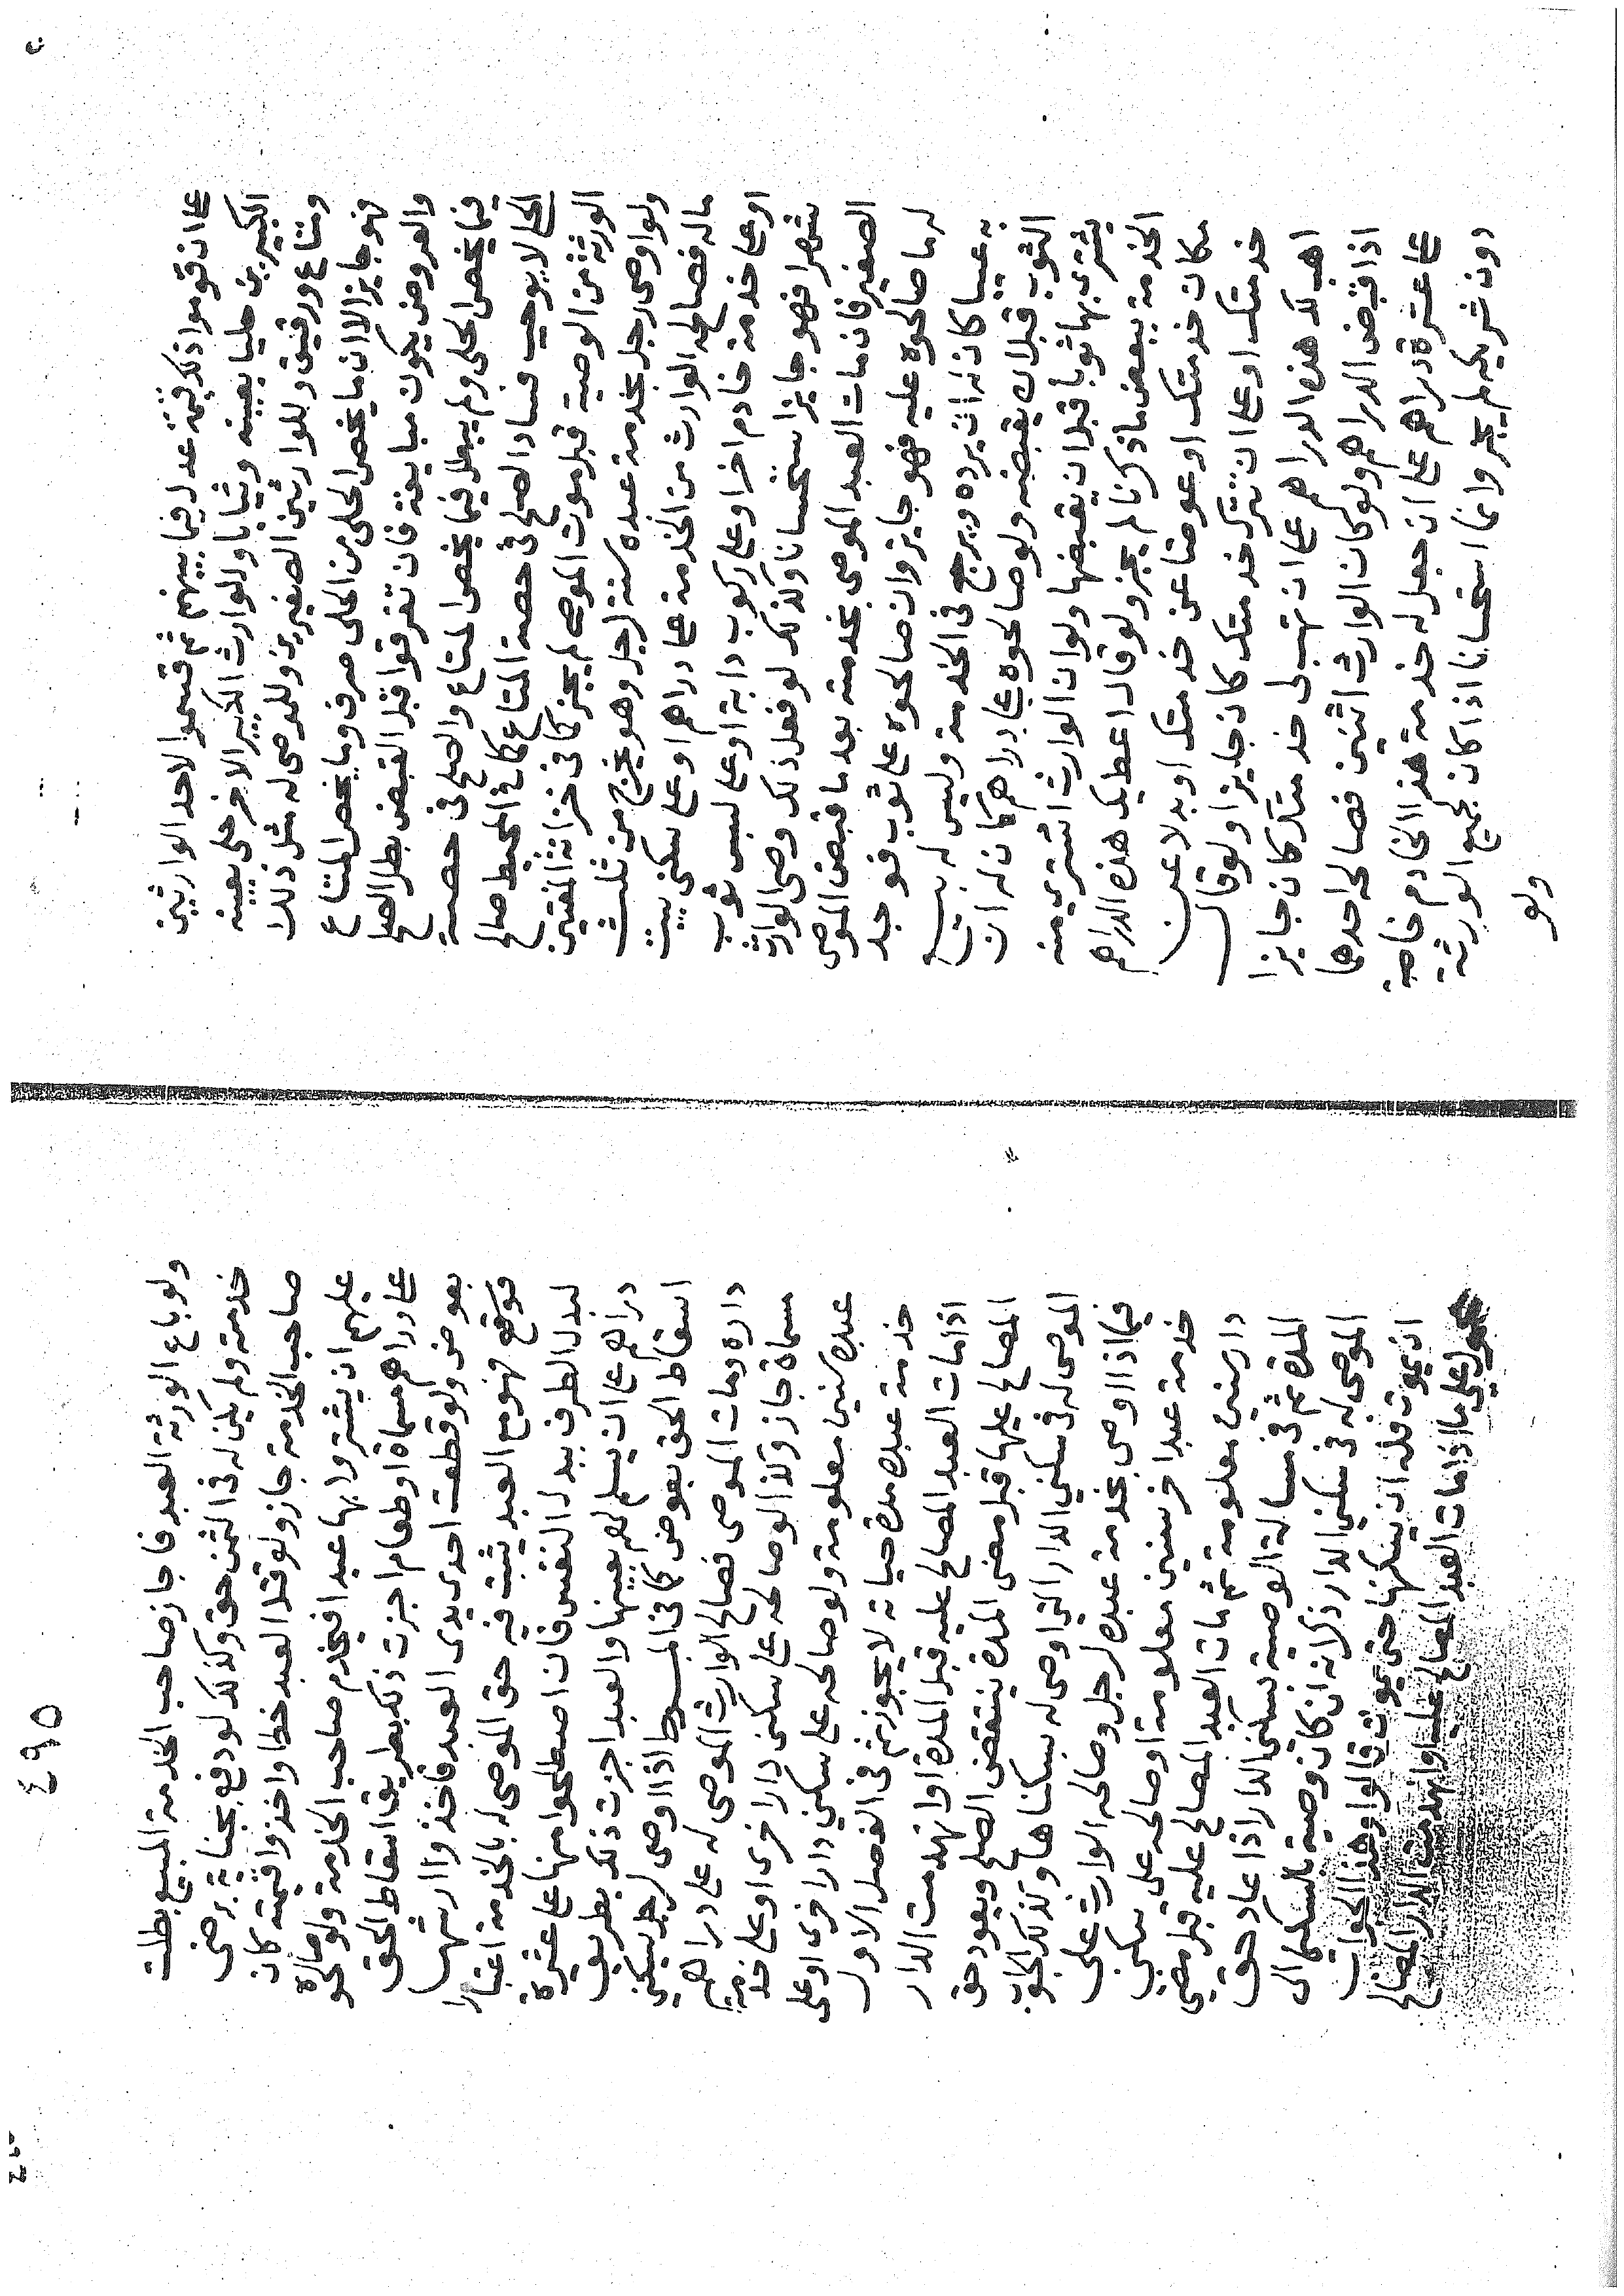 على ان قوموا ذلك قيمة عدل فيما بينهم ثم قسموا لاحد الوارثين
الكبيرين حليا بعينه وثيابا وللوارث الكبير الاخر حلي بعينه
ومتاع ورقيق وللوارثين الصغيرين وللموصى له مثل ذلك
فهو جايز الا ان ما يخص الحلي من الحلي صرف وما يخص المتاع
والعروض يكون مبايعة فان تفرقوا قبل القبض بطل الصلح
فيما يخص الحلي ولم يبطل فيما يخص المتاع والصلح في حصة
الحلي لا يوجب فساد الصلح في حصة المتاع كما في المحيط صالح
الورثة من الوصية قبل موت الموصي لم يجز كما في خزانة المفتين
ولو اوصى رجل بخدمة عبده سنة لرجل وهو يخرج من ثلث
ماله فصالحه الوارث من الخدمة على دراهم او على سكنى بيت
او على خدمة خادم اخر او على ركوب دابة او على لبس ثوب
شهرا فهو جايز استحسانا وكذلك لو فعل ذلك وصي الوارث
الصغير فان مات العبد الموصى بخدمته بعد ما قبض الموصى
له ما صالحوه عليه فهو جايز وان صالحوه على ثوب فوجد
به عيبا كان له ان يرده ويرجع في الخدمة وليس له بيع
الثوب قبل ان يقبضه ولو صالحوه على دراهم كان له ان
يشتري بها ثوبا قبل ان يقبضها ولو ان الوارث اشترى منه
الخدمة ببعض ما ذكرنا لم يجز ولو قال اعطيك هذه الدراهم
مكان خدمتك او عوضا عن خدمتك او بدلا عن
خدمتك او على ان تترك خدمتك كان جايزا ولو قال
اهب لك هذه الدراهم على ان تهب لي خدمتك كان جايزا
اذا قبض الدراهم ولو كان الوارث اثنين فصالحه احدهما
على عشرة دراهم على ان جعل له خدمة هذا الخادم خاصة
دون شريكه لم يجز وانما استحسانا اذا كان لجميع الورثة
ولو
٤٩٥
ولو باع الورثة العبد فاجاز صاحب الخدمة المبيع بطلت
خدمته ولم يكن له في الثمن حق وكذلك لو دفع بجناية برضى
صاحب الخدمة جاز ولو قتل العبد خطا واخذوا قيمته كان
عليهم ان يشتروا بها عبدا فيخدم صاحب الخدمة ولو صالحوه
على دراهم مسماة او طعام اجزت ذلك بطريق اسقاط الحق
بعوض ولو قطعت احدى يدي العبد فاخذوا ارشها
فهو مع العبد يثبت فيه حق الموصى له بالخدمة اعتبارا
لبدل الطرف ببدل النفس فان اصطلحوا منها على عشرة
دراهم على ان يسلم لهم بعينها والعبد اجزت ذلك بطريق
اسقاط الحق بعوض كما في المبسوط اذا اوصى لرجل بسكنى
داره ومات الموصي فصالح الوارث الموصى له على دراهم
مسماة جاز وكذا لو صالحه على سكنى دار اخرى او على خدمة
عبده سنين معلومة ولو صالحه على سكنى دار اخرى او على
خدمة عبده مدة حياته لا يجوز ثم في الفصل الاول
اذا مات العبد المصالح عليه قبل المدة او انهدمت الدار
المصالح عليها قبل مضي المدة ينتقض الصلح ويعود حق
الموصى له في سكنى الدار التي اوصى له بسكناها وكذلك الجواب
فيما اذا اوصى بخدمة عبده لرجل وصالحه الوارث على
خدمة عبد اخر سنين معلومة او صالحه على سكنى
دار سنين معلومة ثم مات العبد المصالح عليه قبل مضي
المدة ثم في مسالة الوصية بسكنى الدار اذا عاد حق
الموصى له في سكنى الدار ذكر انه ان كان وصيته بالسكنى الى
ان يموت فله ان يسكنها حتى يموت قالوا وهذا الجواب
اذا مات العبد المصالح عليه او انهدمت الدار المصالح